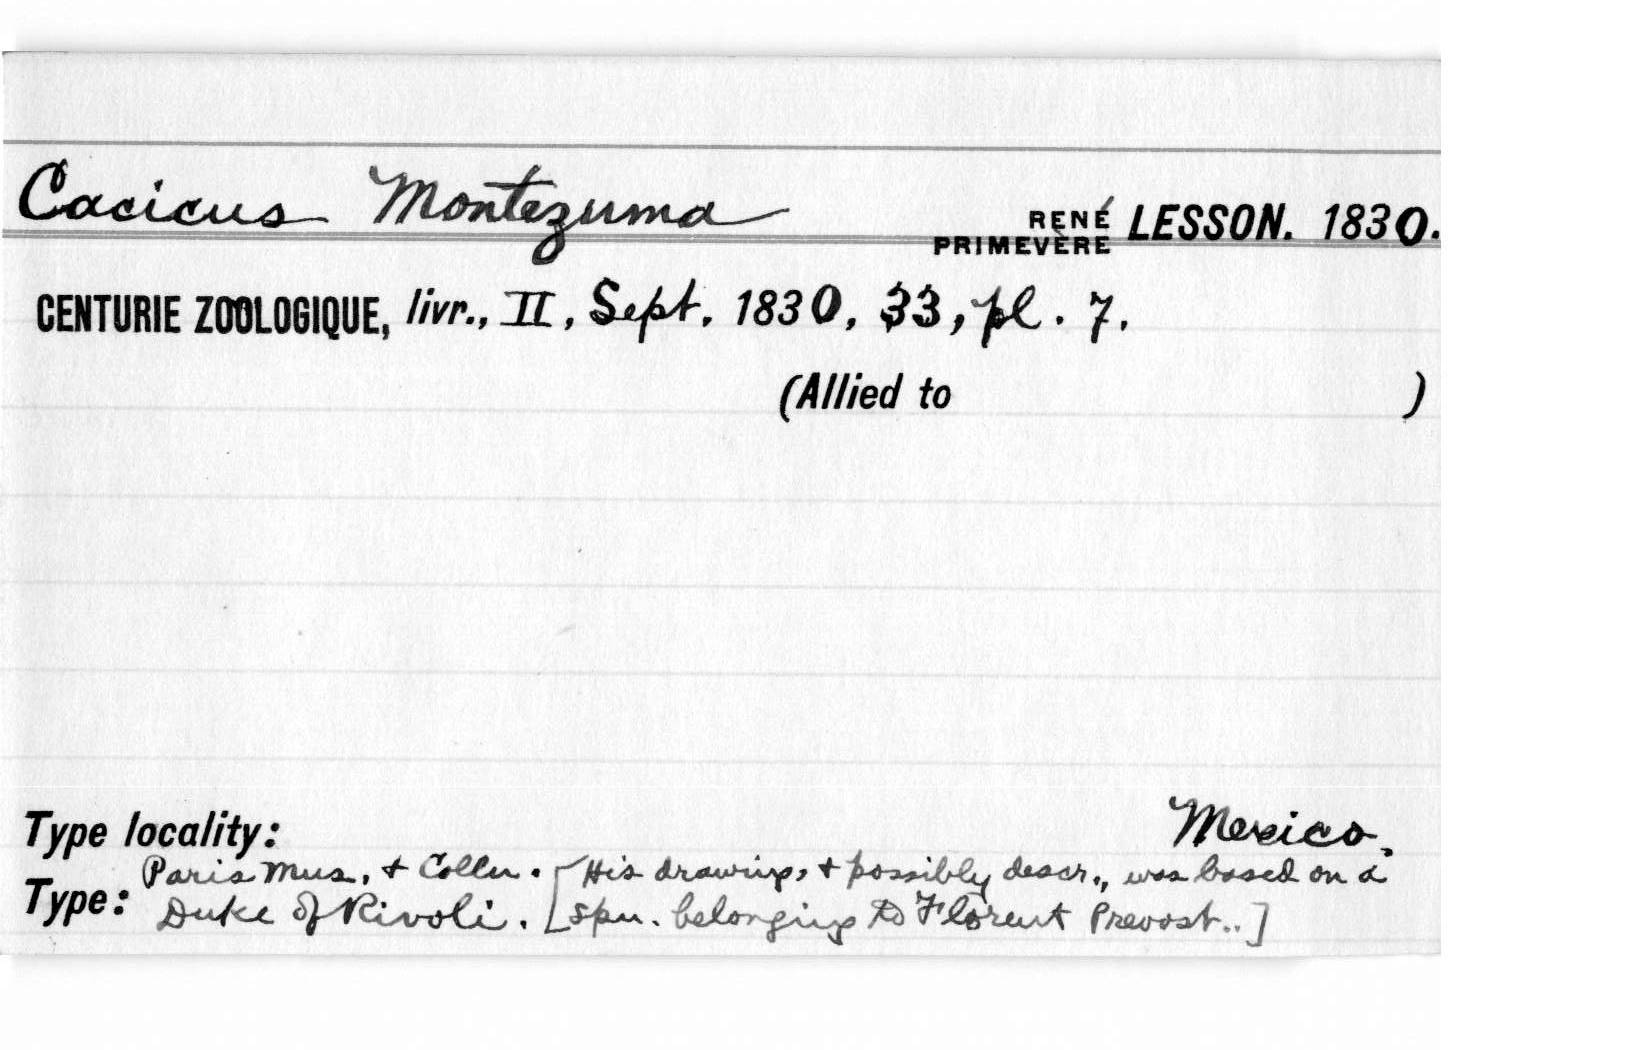 Cacicus Montezuma RENÉ PRIMEVÈRE LESSON. 1830.
CENTURIE ZOOLOGIQUE, livr., II, Sept. 1830, 33, pl. 7.
(Allied to )
Type locality: Mexico.
Type: Paris Mus. + Colln. [His drawing, + possibly descr., was based on a
Duke of Rivoli. spn. belonging to Florent Prevost..]